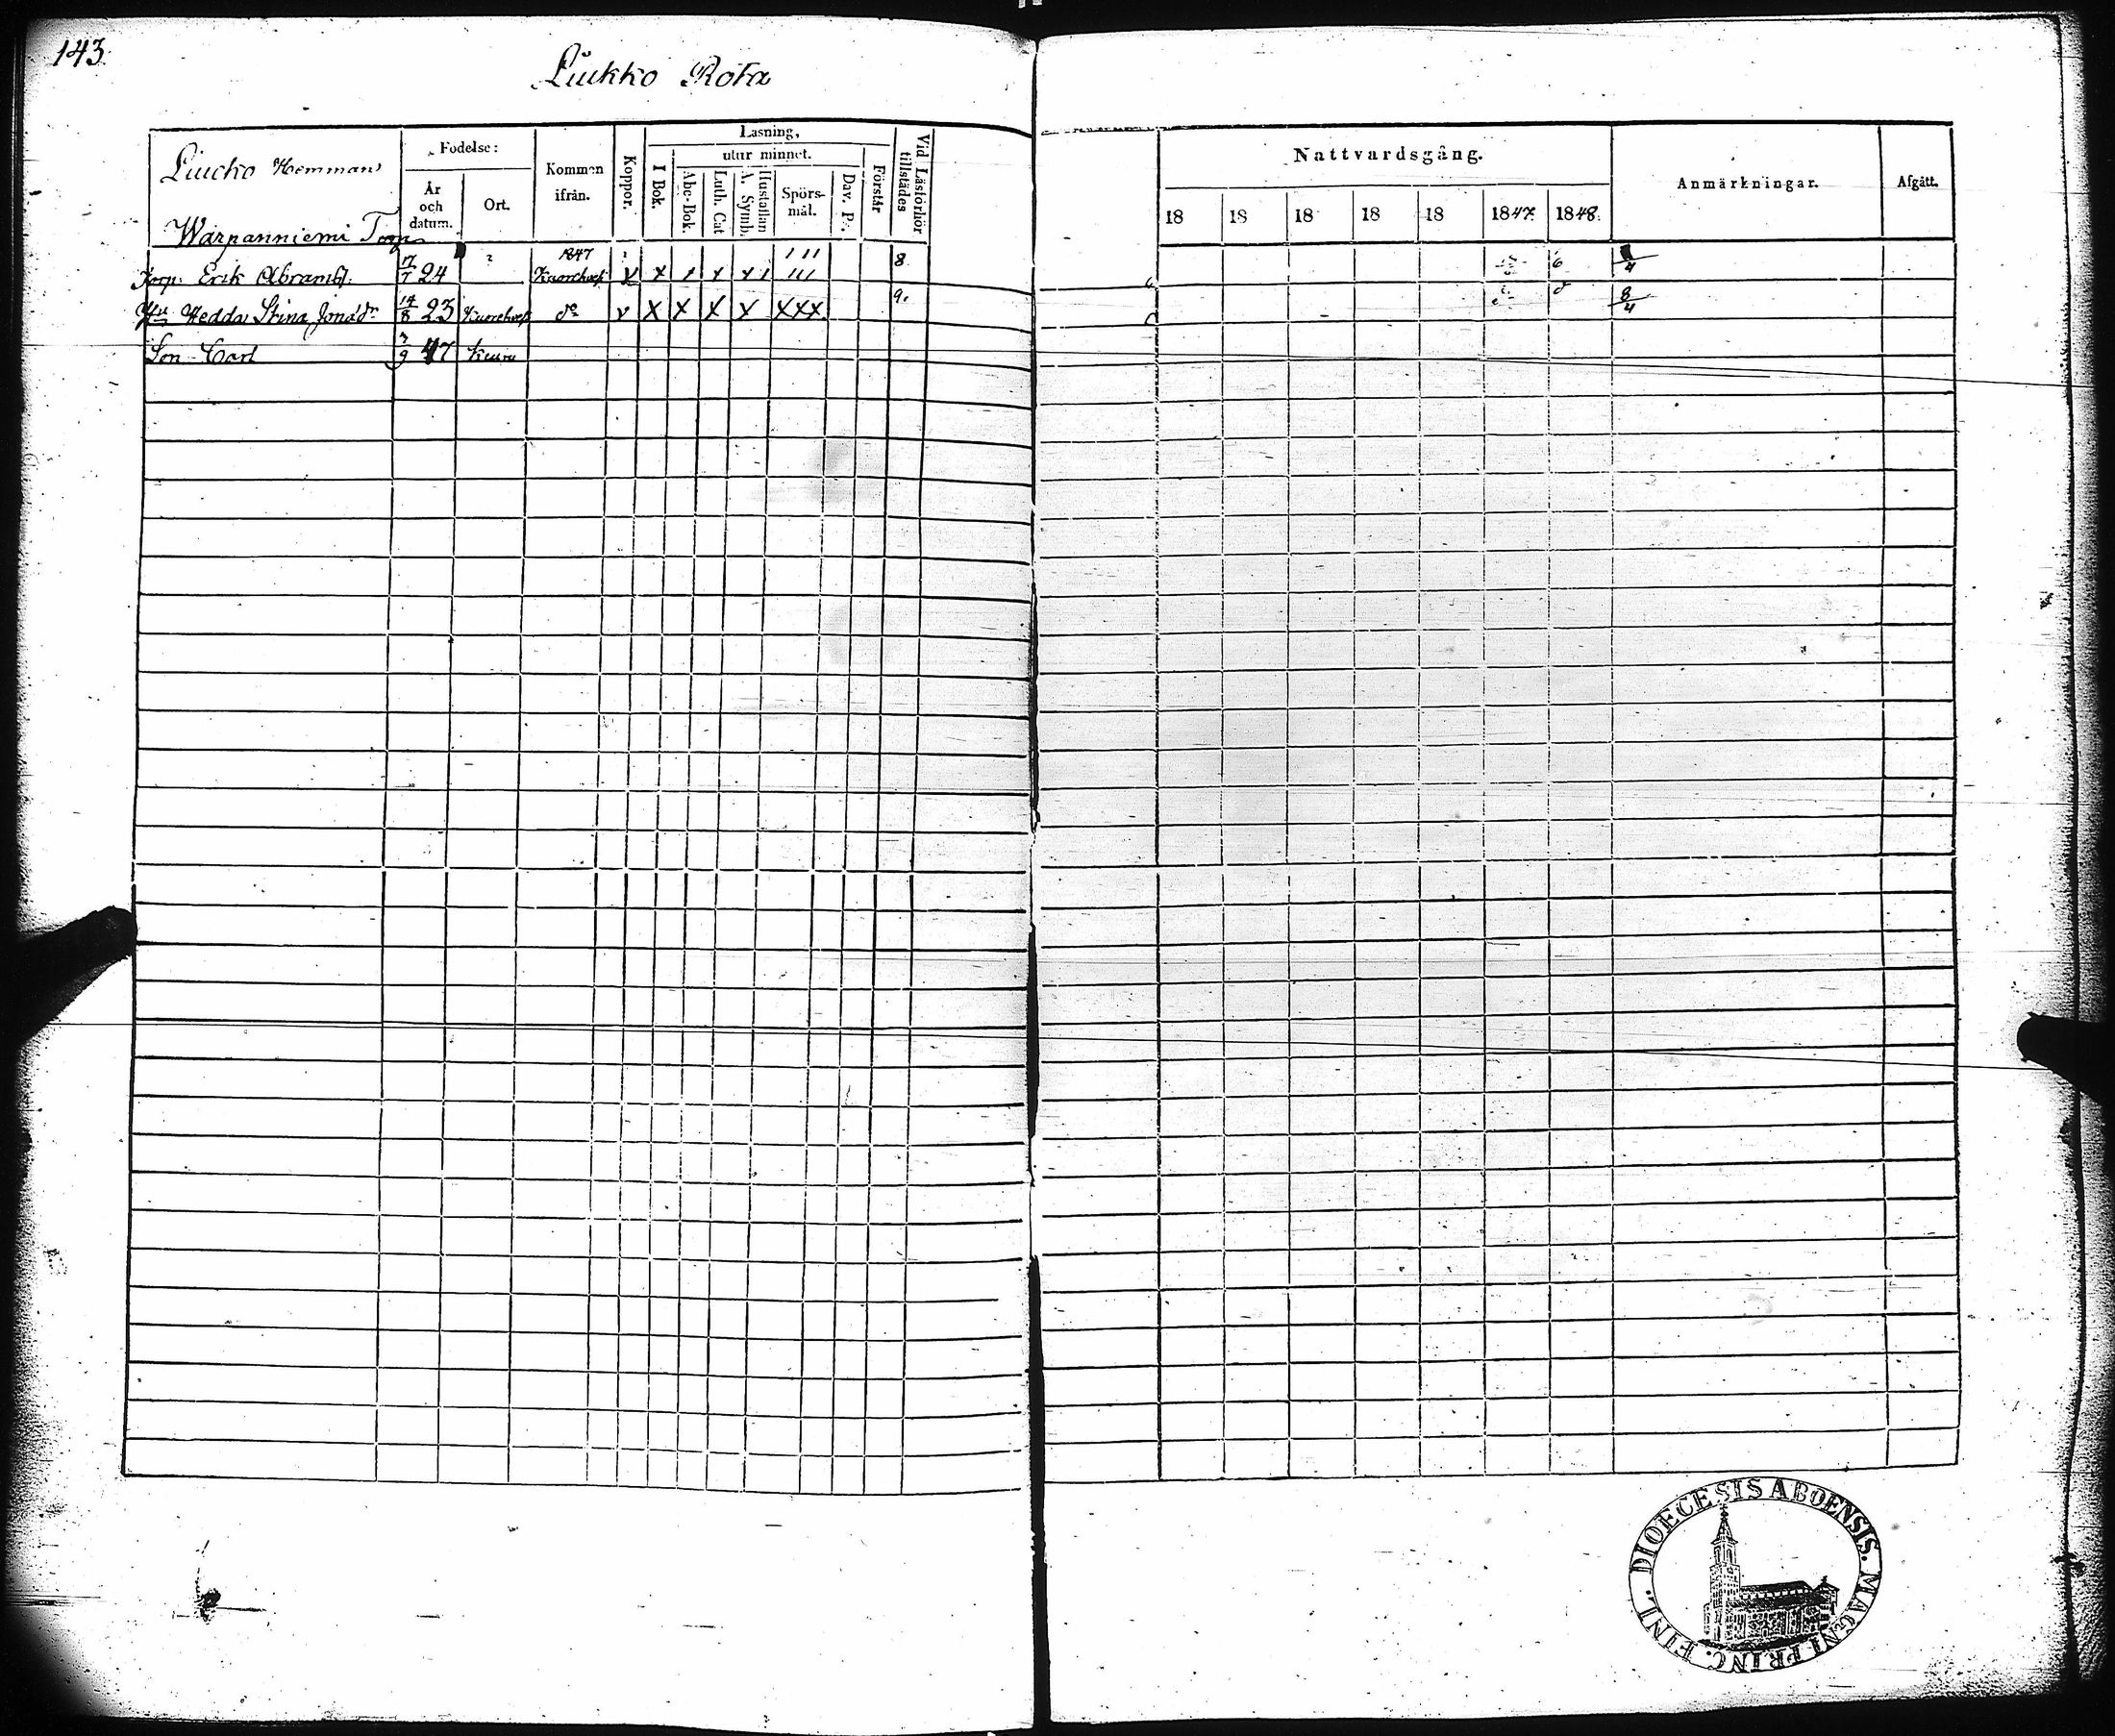 143.
Liukko Rota
Liucko Hemman
Födelse:
År och datum.
Ort.
Kommen ifrån.
Koppor.
Läsning,
I Bok.
utur minnet.
Abc-Bok.
Luth. Cat
Hustaflan A. Symb.
Spörsmål.
Dav. Ps.
Förstår
Vid Läsförhör tillstädes
Nattvardsgång.
18 18 18 18 18 1847. 1848.
Anmärkningar.
Afgått.
Warpanniemi Torp
1847 111
Torp. Erik Abramss. 17/7 24 v x x x 111 8 6
Hu Hedda Stina Jonad:r 14/8 23 do v X X X X XXX 9. 8/4
Son Carl 7/9 47 Kuru
DIOECESIS ABOENSIS. MAGNI PRINC. FINL.